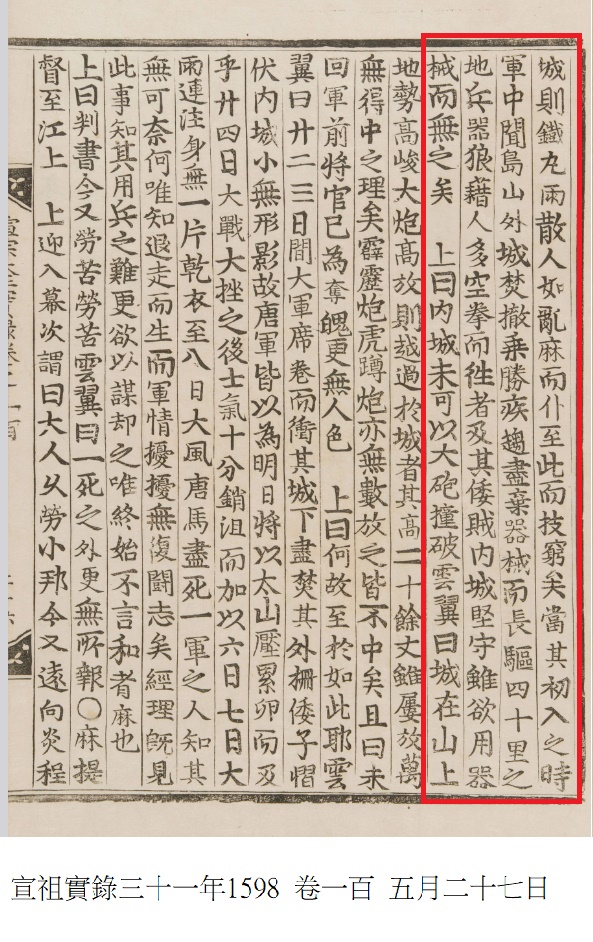 城則鐵丸雨散人如亂麻而仆至此而技窮矣當其初入之時
軍中聞島山外城焚撤乘勝疾趨盡棄器械而長驅四十里之
地兵器狼藉人多空拳而徃者及其倭賊內城堅守雖欲用器
械而無之矣 上曰內城未可以大砲撞破雲翼曰城在山上
地勢高峻大炮高放則越過於城者其高二十餘丈雖屢放萬
無得中之理矣霹靂炮虎蹲炮亦無數放之皆不中矣且曰未
回軍前將官已為奪魄更無人色 上曰何故至於如此耶雲
翼曰廿二三日間大軍席卷而衝其城下盡焚其外柵倭子慴
伏內城小無形影故唐軍皆以為明日將以太山壓累卵而及
乎廿四日大戰大挫之後士氣十分銷沮而加以六日七日大
雨連注身無一片乾衣至八日大風唐馬盡死一軍之人知其
無可奈何唯知退走而生而軍情擾擾無復鬪志矣經理旣見
此事知其用兵之難更欲以謀却之唯終始不言和者麻也
上曰判書今又勞苦勞苦雲翼曰一死之外更無所報○麻提
督至江上 上迎入幕次謂曰大人久勞小邦今又遠向炎程
宣祖實錄三十一年1598 卷一百 五月二十七日